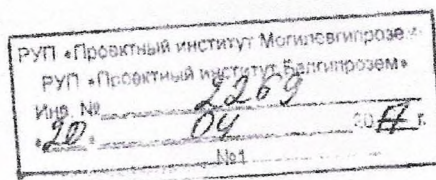 РУП «Проектный институт Могилевгипрозем»
РУП «Проектный институт Белгипрозем»
Инв. № 2269
«20» 04 2017 г.
№1